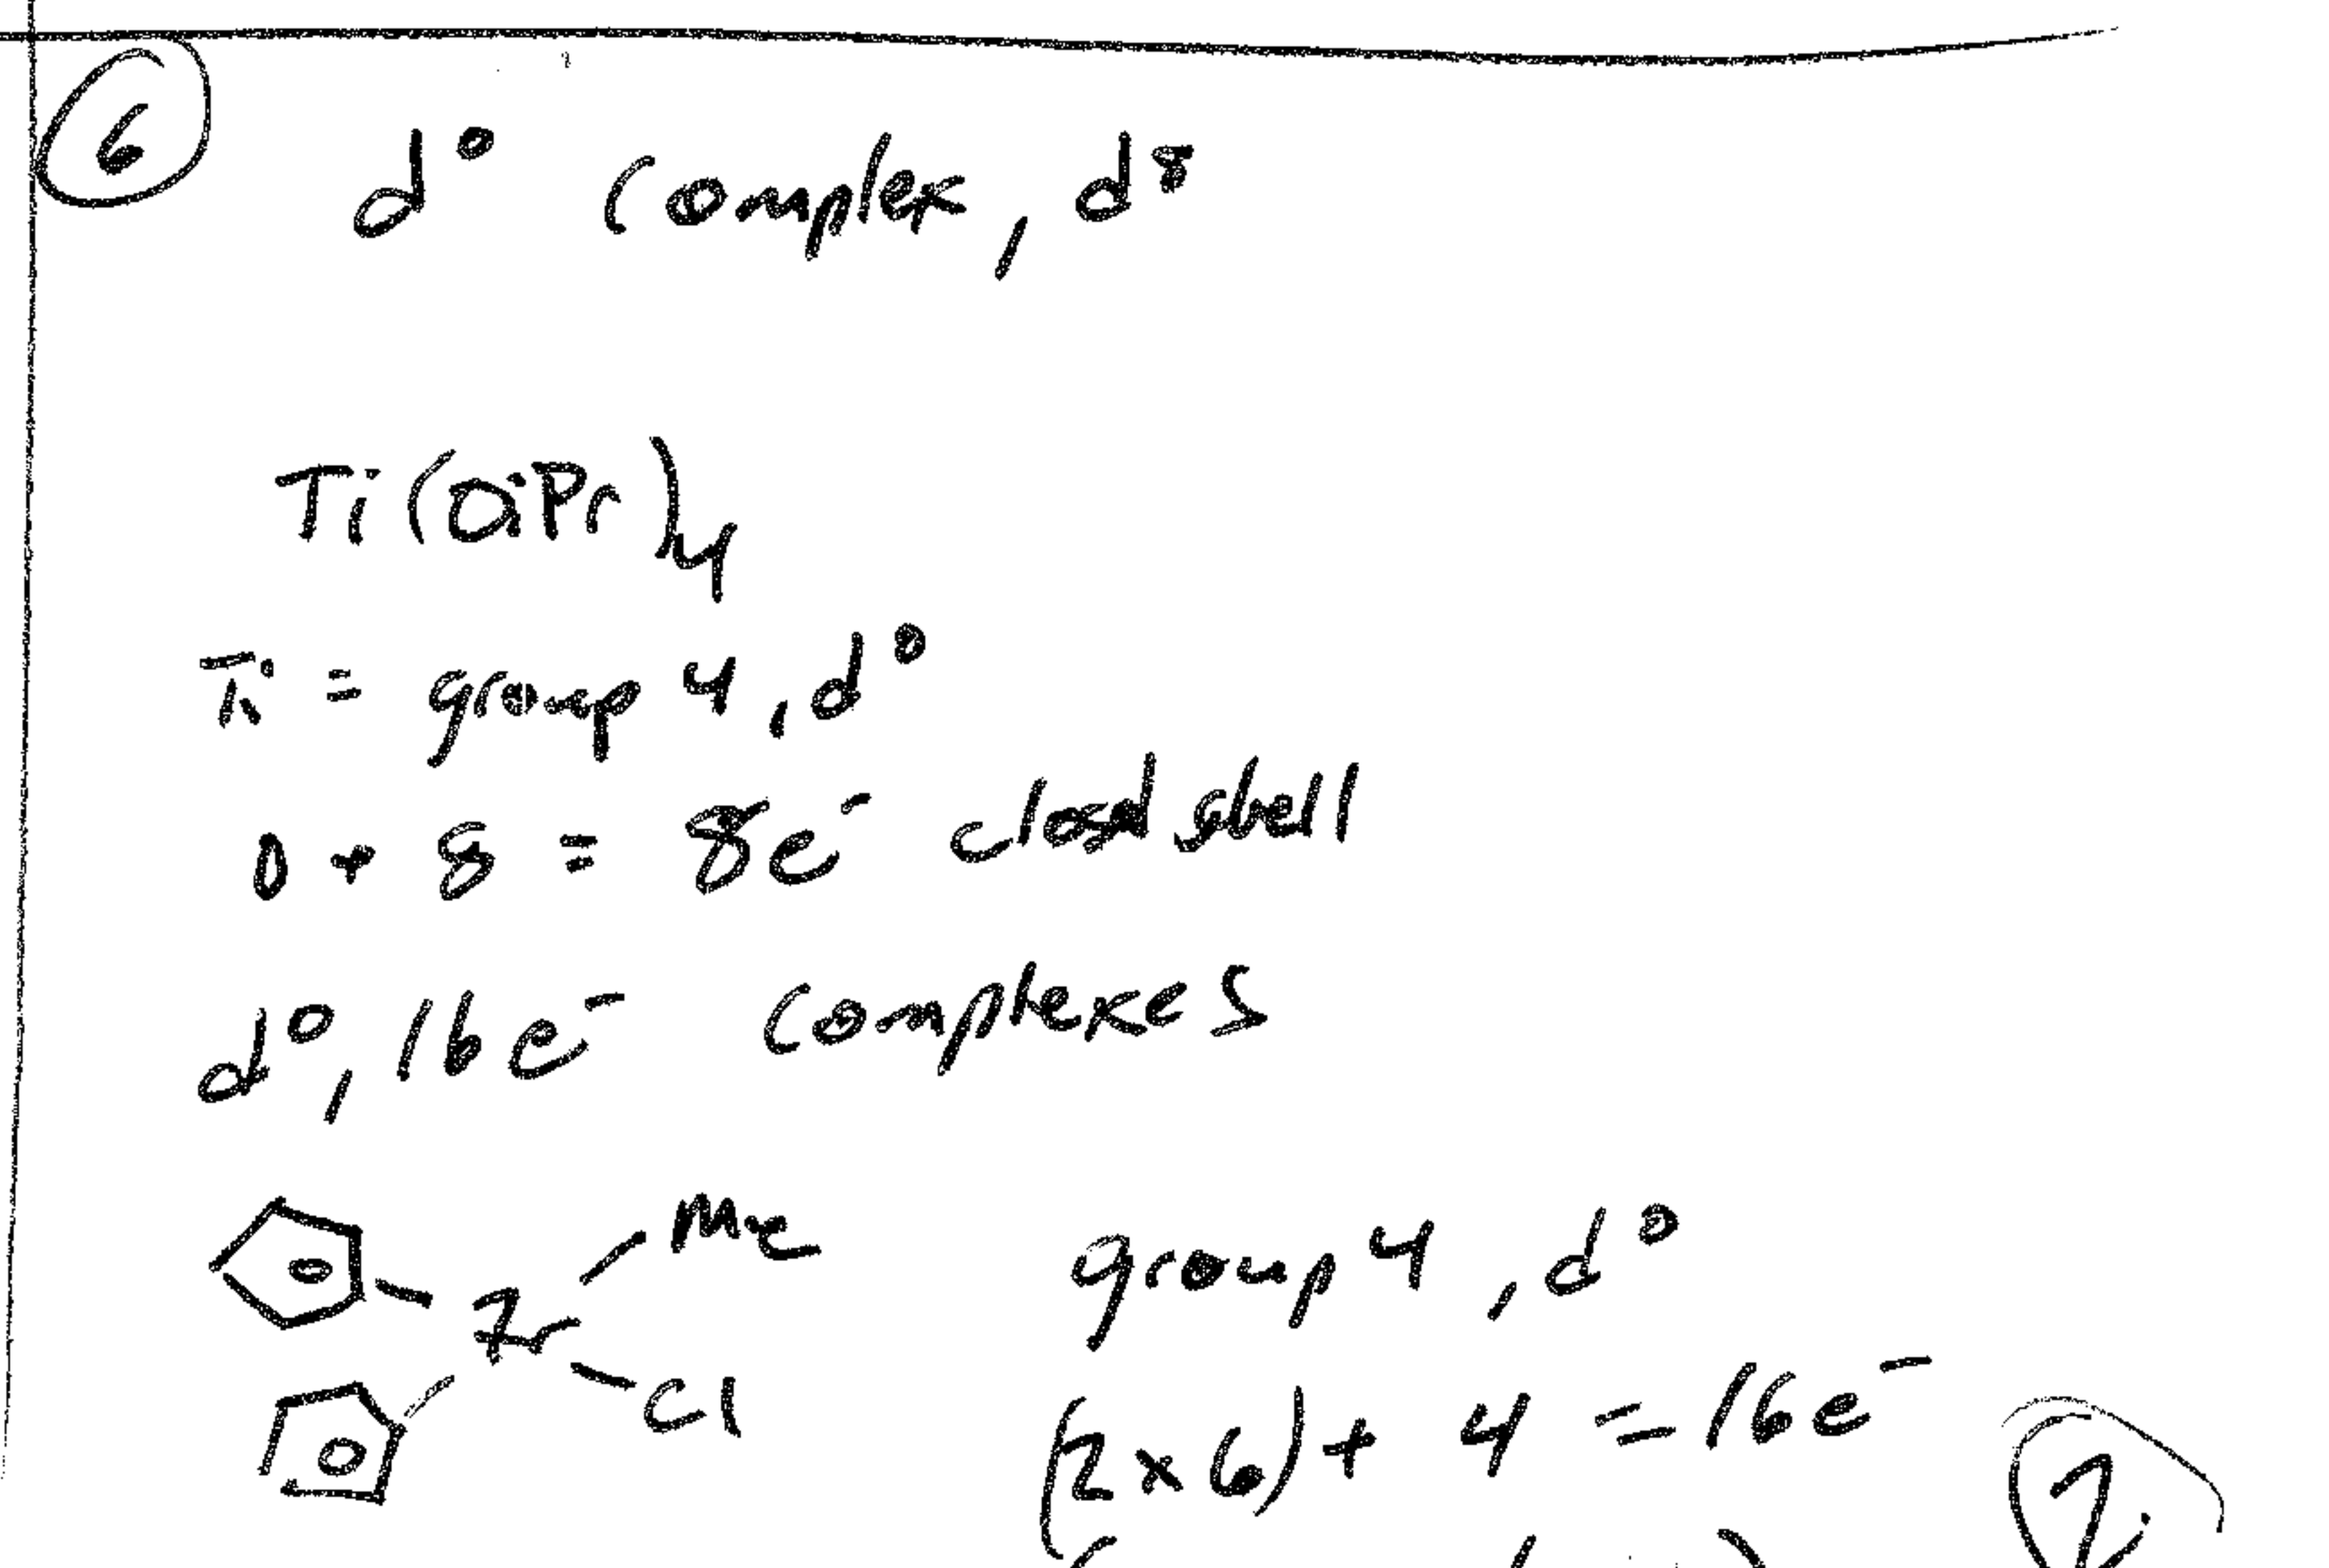 6
d⁰ complex, d⁸
Ti(OiPr)₄
Ti = group 4, d⁰
0 + 8 = 8e⁻ closed shell
d⁰, 16e⁻ complexes
Me
group 4, d⁰
Zr
Cl
(2×6) + 4 = 16e⁻